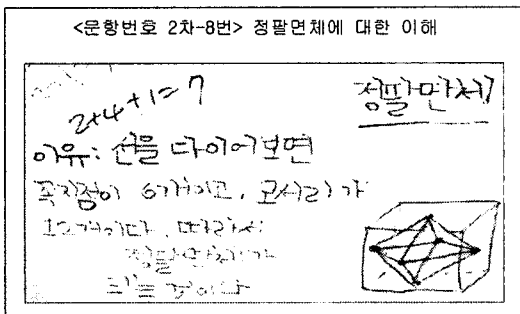 <문항번호 2차-8번> 정팔면체에 대한 이해
2+4+1=7
정팔면체
이유: 선을 다 이어보면
꼭지점이 6개이고, 모서리가
12개이다. 따라서
정팔면체가
되는 것이다